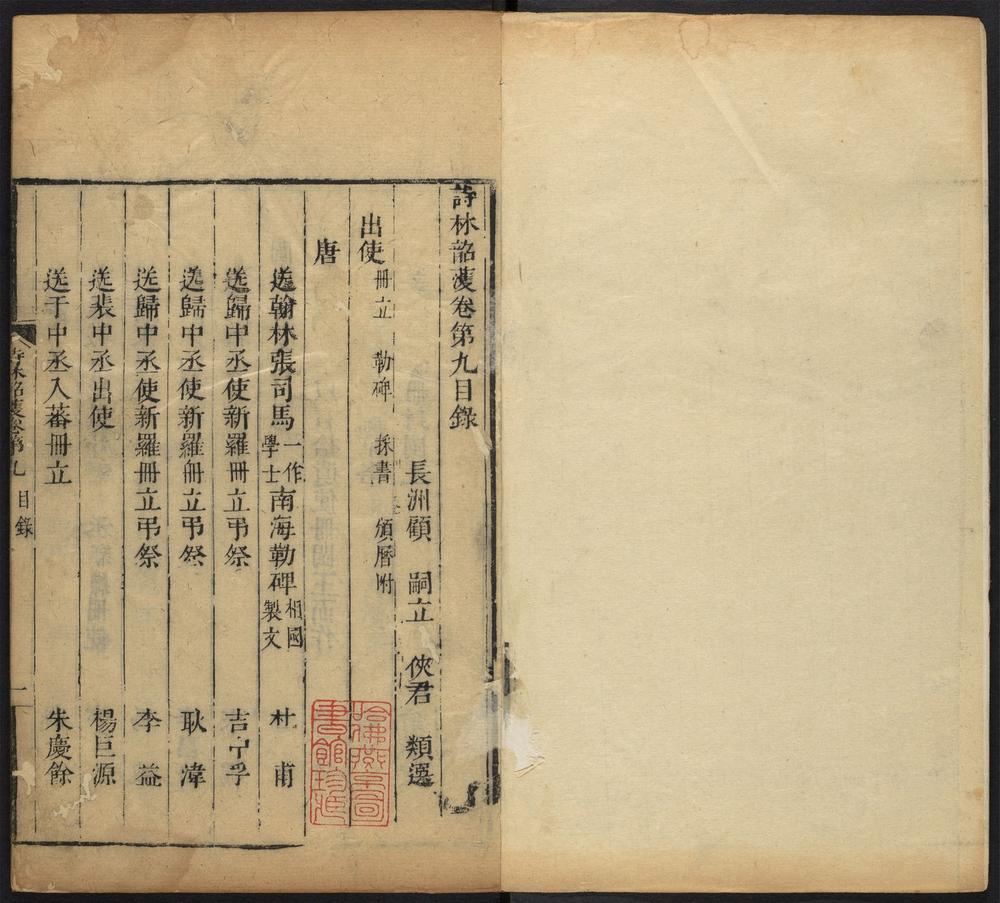 詩林韶濩卷第九目錄
長洲顧 嗣立 俠君 類選
出使 冊立 勒碑 採書 頒曆附
唐
送翰林張司馬一作學士南海勒碑相國製文 杜 甫
送歸中丞使新羅冊立弔祭 吉中孚
送歸中丞使新羅冊立弔祭 耿 湋
送歸中丞使新羅冊立弔祭 李 益
送裴中丞出使 楊巨源
送于中丞入蕃冊立 朱慶餘
詩林韶濩卷第九 目錄 一
哈佛燕京圖書館珍藏